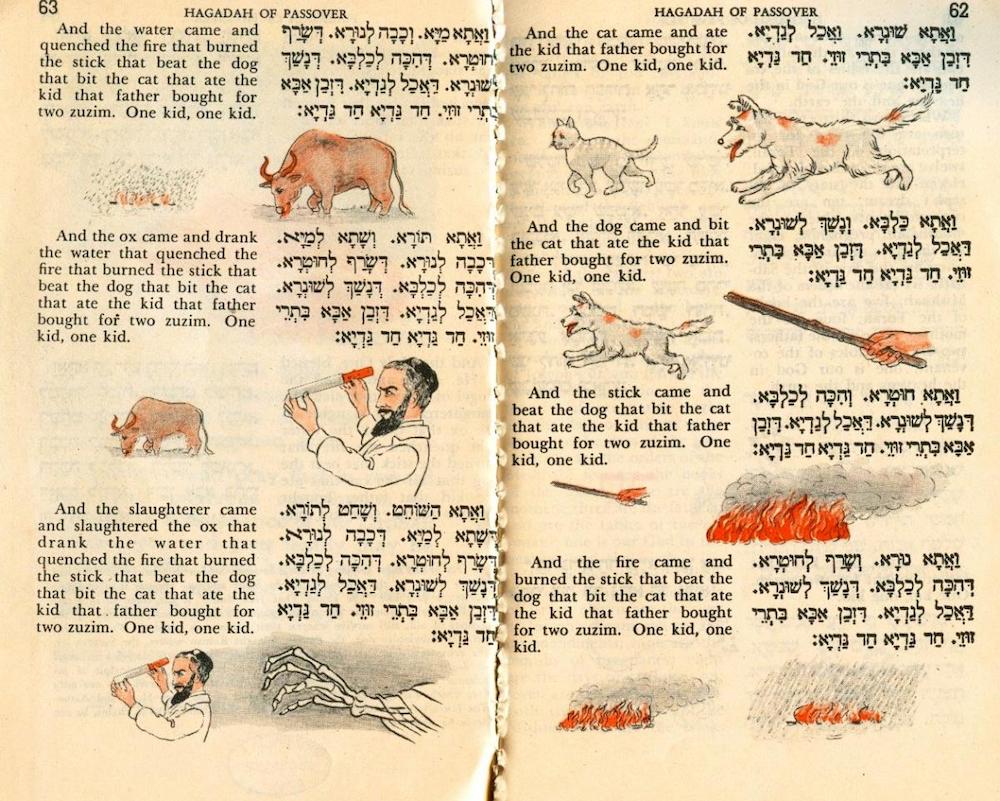 HAGADAH OF PASSOVER 62
And the cat came and ate
the kid that father bought for
two zuzim. One kid, one kid.
וַאֲתָא שׁוּנְרָא. וְאָכַל לְגַדְיָא.
דְּזַבִּן אַבָּא בִּתְרֵי זוּזֵי. חַד גַּדְיָא
חַד גַּדְיָא:
And the dog came and bit
the cat that ate the kid that
father bought for two zuzim.
One kid, one kid.
וַאֲתָא כַלְבָּא. וְנָשַׁךְ לְשׁוּנְרָא.
דְּאָכַל לְגַדְיָא. דְּזַבִּן אַבָּא בִּתְרֵי
זוּזֵי. חַד גַּדְיָא חַד גַּדְיָא:
And the stick came and
beat the dog that bit the cat
that ate the kid that father
bought for two zuzim. One
kid, one kid.
וַאֲתָא חוּטְרָא. וְהִכָּה לְכַלְבָּא.
דְּנָשַׁךְ לְשׁוּנְרָא. דְּאָכַל לְגַדְיָא. דְּזַבִּן
אַבָּא בִּתְרֵי זוּזֵי. חַד גַּדְיָא חַד גַּדְיָא:
And the fire came and
burned the stick that beat the
dog that bit the cat that ate
the kid that father bought
for two zuzim. One kid, one
kid.
וַאֲתָא נוּרָא. וְשָׂרַף לְחוּטְרָא.
דְּהִכָּה לְכַלְבָּא. דְּנָשַׁךְ לְשׁוּנְרָא.
דְּאָכַל לְגַדְיָא. דְּזַבִּן אַבָּא בִּתְרֵי
זוּזֵי. חַד גַּדְיָא חַד גַּדְיָא:
63 HAGADAH OF PASSOVER
And the water came and
quenched the fire that burned
the stick that beat the dog
that bit the cat that ate the
kid that father bought for
two zuzim. One kid, one kid.
וַאֲתָא מַיָּא. וְכָבָה לְנוּרָא. דְּשָׂרַף
לְחוּטְרָא. דְּהִכָּה לְכַלְבָּא. דְּנָשַׁךְ
לְשׁוּנְרָא. דְּאָכַל לְגַדְיָא. דְּזַבִּן אַבָּא
בִּתְרֵי זוּזֵי. חַד גַּדְיָא חַד גַּדְיָא:
And the ox came and drank
the water that quenched the
fire that burned the stick that
beat the dog that bit the cat
that ate the kid that father
bought for two zuzim. One
kid, one kid.
וַאֲתָא תוֹרָא. וְשָׁתָא לְמַיָּא.
דְּכָבָה לְנוּרָא. דְּשָׂרַף לְחוּטְרָא.
דְּהִכָּה לְכַלְבָּא. דְּנָשַׁךְ לְשׁוּנְרָא.
דְּאָכַל לְגַדְיָא. דְּזַבִּן אַבָּא בִּתְרֵי
זוּזֵי. חַד גַּדְיָא חַד גַּדְיָא:
And the slaughterer came
and slaughtered the ox that
drank the water that
quenched the fire that burned
the stick that beat the dog
that bit the cat that ate the
kid that father bought for
two zuzim. One kid, one kid.
וַאֲתָא הַשּׁוֹחֵט. וְשָׁחַט לְתוֹרָא.
דְּשָׁתָא לְמַיָּא. דְּכָבָה לְנוּרָא.
דְּשָׂרַף לְחוּטְרָא. דְּהִכָּה לְכַלְבָּא.
דְּנָשַׁךְ לְשׁוּנְרָא. דְּאָכַל לְגַדְיָא.
דְּזַבִּן אַבָּא בִּתְרֵי זוּזֵי. חַד גַּדְיָא
חַד גַּדְיָא: